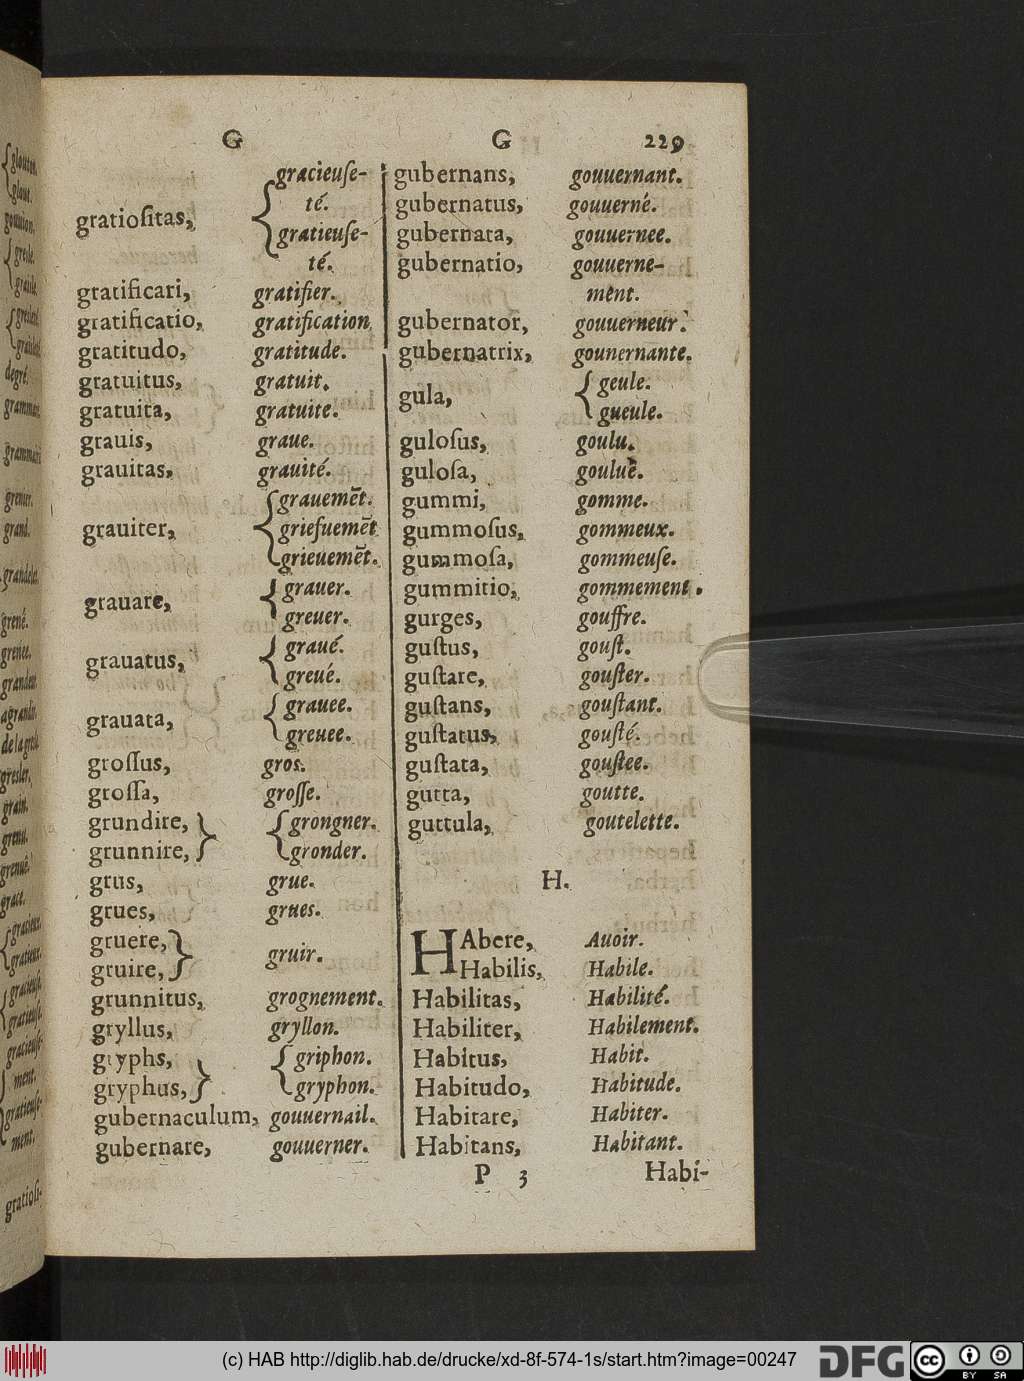 G G 229
gratioſitas, gracieuſe-
té.
gratieuſe-
té.
gratificari, gratifier.
gratificatio, gratification
gratitudo, gratitude.
gratuitus, gratuit.
gratuita, gratuite.
grauis, graue.
grauitas, grauité.
grauiter, grauemēt.
griefuemēt
grieuemēt.
grauare, grauer.
greuer.
grauatus, graué.
greué.
grauata, grauee.
greuee.
groſſus, gros.
groſſa, groſſe.
grundire, grongner.
grunnire, gronder.
grus, grue.
grues, grues.
gruere,
gruire, gruir.
grunnitus, grognement.
gryllus, gryllon.
gryphs, griphon.
gryphus, gryphon.
gubernaculum, gouuernail.
gubernare, gouuerner.
gubernans, gouuernant.
gubernatus, gouuerné.
gubernata, gouuernee.
gubernatio, gouuerne-
ment.
gubernator, gouuerneur.
gubernatrix, gounernante.
gula, geule.
gueule.
guloſus, goulu.
guloſa, goulue.
gummi, gomme.
gummoſus, gommeux.
gummoſa, gommeuſe.
gummitio, gommement.
gurges, gouffre.
guſtus, gouſt.
guſtare, gouſter.
guſtans, gouſtant.
guſtatus, gouſté.
guſtata, gouſtee.
gutta, goutte.
guttula, goutelette.
H.
HAbere, Auoir.
Habilis, Habile.
Habilitas, Habilité.
Habiliter, Habilement.
Habitus, Habit.
Habitudo, Habitude.
Habitare, Habiter.
Habitans, Habitant.
P 3 Habi-
(c) HAB http://diglib.hab.de/drucke/xd-8f-574-1s/start.htm?image=00247
DFG
cc BY SA